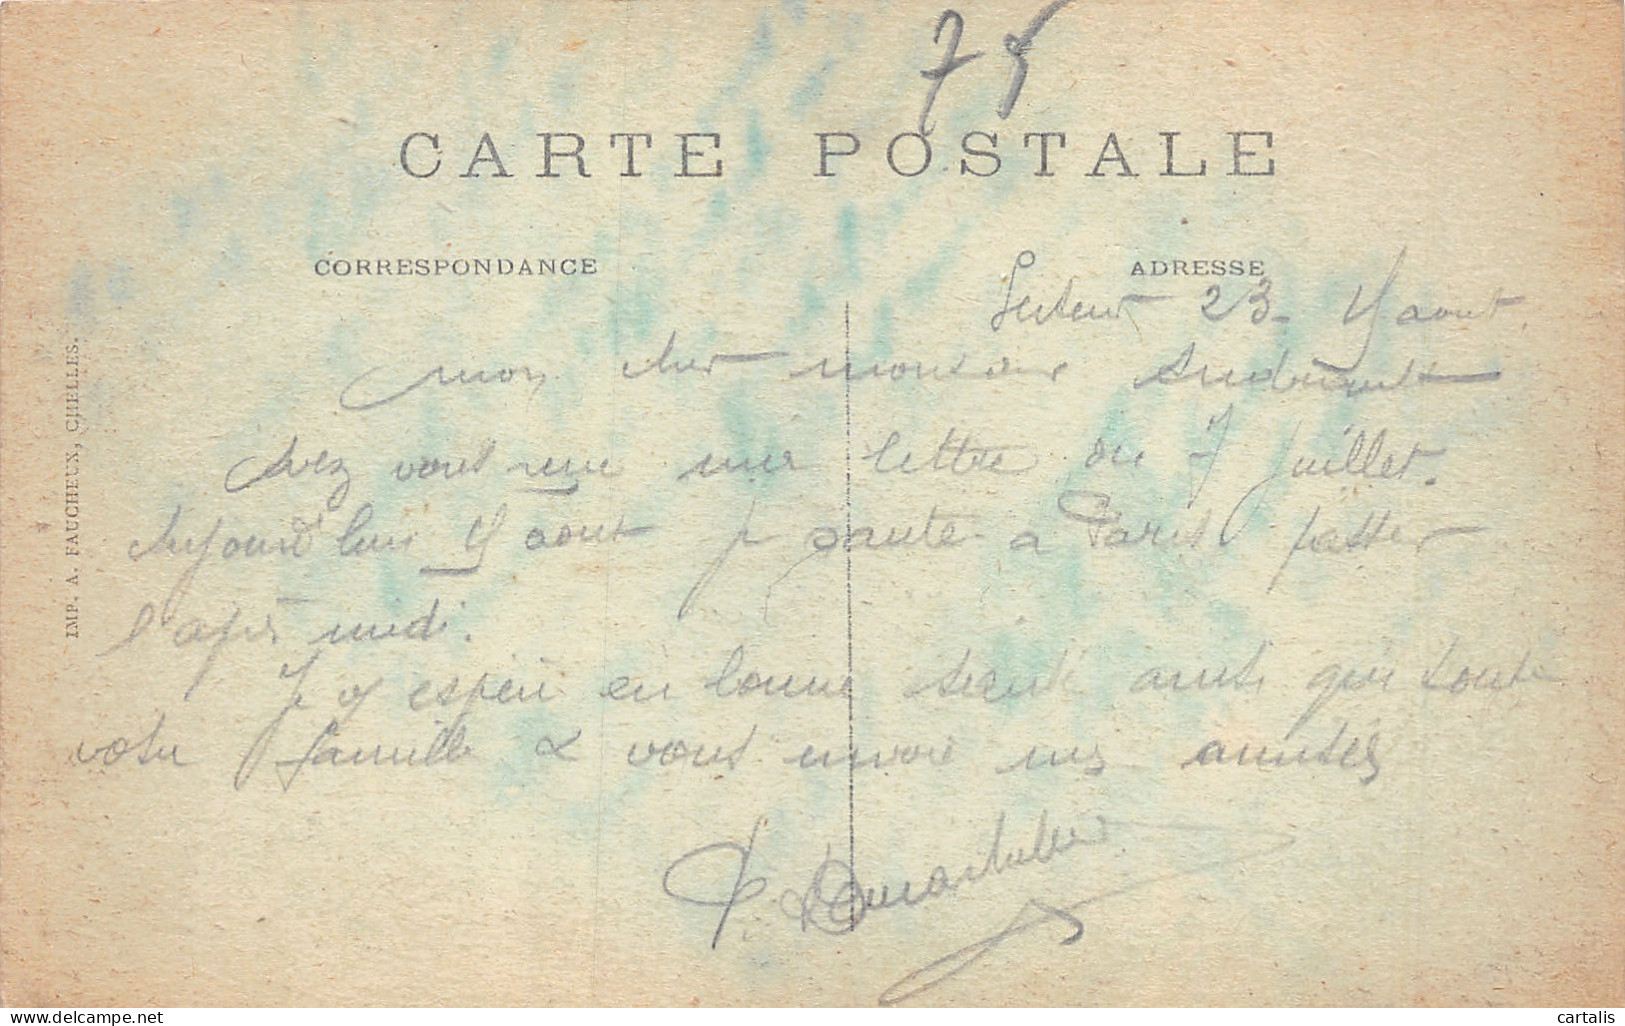 75
CARTE POSTALE
CORRESPONDANCE
ADRESSE
IMP. A. FAUCHEUX, CHELLES.
Secteur 23 - 4 aout.
mon cher monsieur
Avez vous reçue ma lettre du 7 juillet.
Aujourd'hui 4 aout je saute a Paris passer
l'après midi.
Je v espère en bonne santé ainsi que toute
votre famille & vous envoie mes amitiés
www.delcampe.net
cartalis